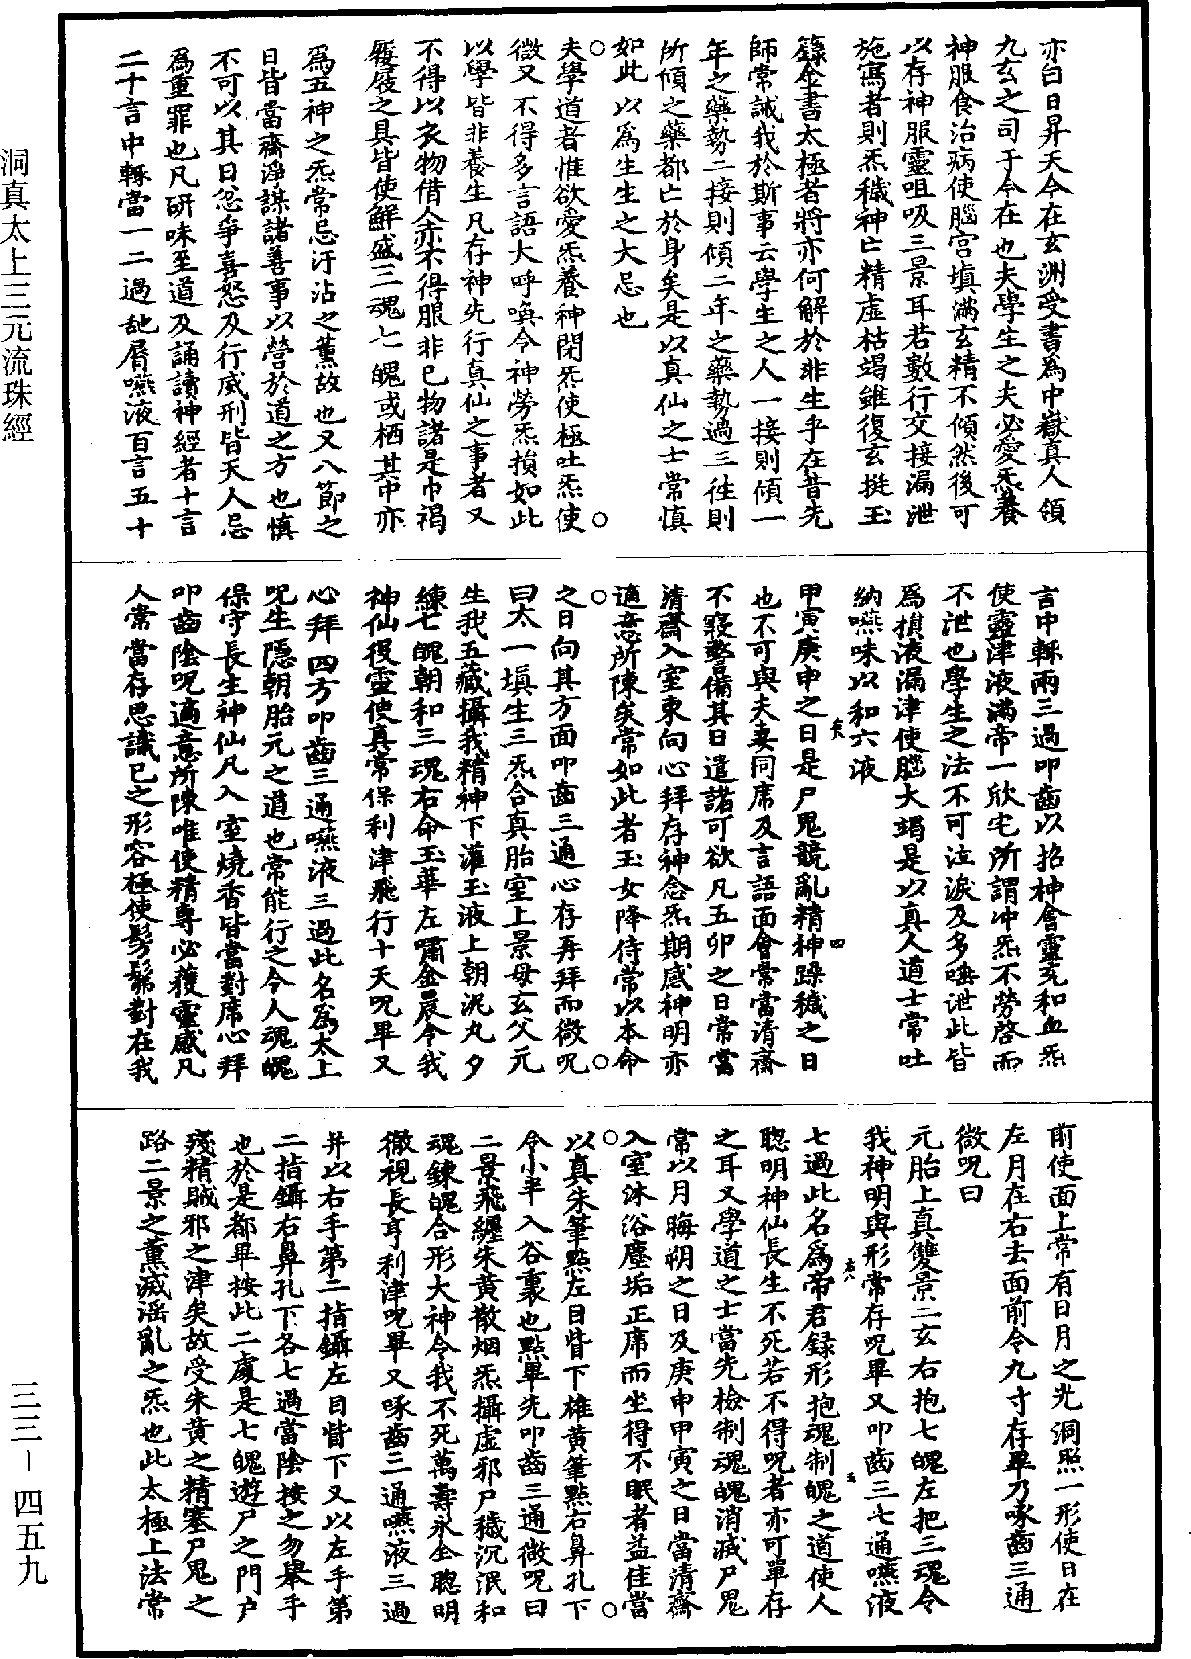 亦白日昇天今在玄洲受書為中嶽真人領
九玄之司于今在也夫學生之夫必愛炁養
神服食治病使腦宮填滿玄精不傾然後可
以存神服靈咀吸三景耳若數行交接漏泄
施寫者則炁穢神亡精虛枯竭雖復玄挺玉
籙金書太極者將亦何解於非生乎在昔先
師常誡我於斯事云學生之人一接則傾一
年之藥勢二接則傾二年之藥勢過三往則
所傾之藥都亡於身矣是以真仙之士常慎
如此以為生生之大忌也
夫學道者惟欲愛炁養神閉炁使極吐炁使
微又不得多言語大呼喚令神勞炁損如此
以學皆非養生凡存神先行真仙之事者又
不得以衣物借人亦不得服非已物諸是巾褐
履屐之具皆使鮮盛三魂七魄或栖其中亦
為五神之炁常忌汙沾之薰故也又八節之
日皆當齋淨謀諸善事以營於道之方也慎
不可以其日忿爭喜怒及行威刑皆天人忌
為重罪也凡研味至道及誦讀神經者十言
二十言中輒當一二過舐脣嚥液百言五十
言中輒兩三過叩齒以招神會靈充和血炁
使靈津液滿帝一欣宅所謂冲炁不勞啓而
不泄也學生之法不可泣淚及多唾泄此皆
為損液漏津使腦大竭是以真人道士常吐
納嚥味以和六液
甲寅庚申之日是尸鬼競亂精神躁穢之日
也不可與夫妻同席及言語面會常當清齋
不寢警備其日遣諸可欲凡五卯之日常當
清齋入室東向心拜存神念炁期感神明亦
適意所陳矣常如此者玉女降侍常以本命
之日向其方面叩齒三通心存再拜而微呪
曰太一填生三炁合真胎室上景母玄父元
生我五藏攝我精神下灌玉液上朝泥丸夕
練七魄朝和三魂右命玉華左嘯金晨令我
神仙役靈使真常保利津飛行十天呪畢又
心拜四方叩齒三通嚥液三過此名為太上
呪生隱朝胎元之道也常能行之令人魂魄
保守長生神仙凡入室燒香皆當對席心拜
叩齒陰呪適意所陳唯使精專必獲靈感凡
人常當存思識已之形容極使髣髴對在我
前使面上常有日月之光洞照一形使日在
左月在右去面前令九寸存畢乃啄齒三通
微呪曰
元胎上真雙景二玄右抱七魄左把三魂令
我神明與形常存呪畢又叩齒三七通嚥液
七過此名為帝君録形抱魂制魄之道使人
聰明神仙長生不死若不得呪者亦可單存
之耳又學道之士當先檢制魂魄消滅尸鬼
常以月晦朔之日及庚申甲寅之日當清齋
入室沐浴塵垢正席而坐得不眠者益佳當
以真朱筆點左目眥下雄黃筆點右鼻孔下
令小半入谷裏也點畢先叩齒三通微呪曰
二景飛纏朱黃散烟炁攝虛邪尸穢沉泯和
魂鍊魄合形大神令我不死萬壽永全聰明
徹視長享利津呪畢又啄齒三通嚥液三過
并以右手第二指鑷左目眥下又以左手第
二指鑷右鼻孔下各七過當陰按之勿舉手
也於是都畢按此二處是七魄遊尸之門戶
殘精賊邪之津矣故受朱黃之精塞尸鬼之
路二景之薰滅滛亂之炁也此太極上法常
洞真太上三元流珠經
三三－四五九